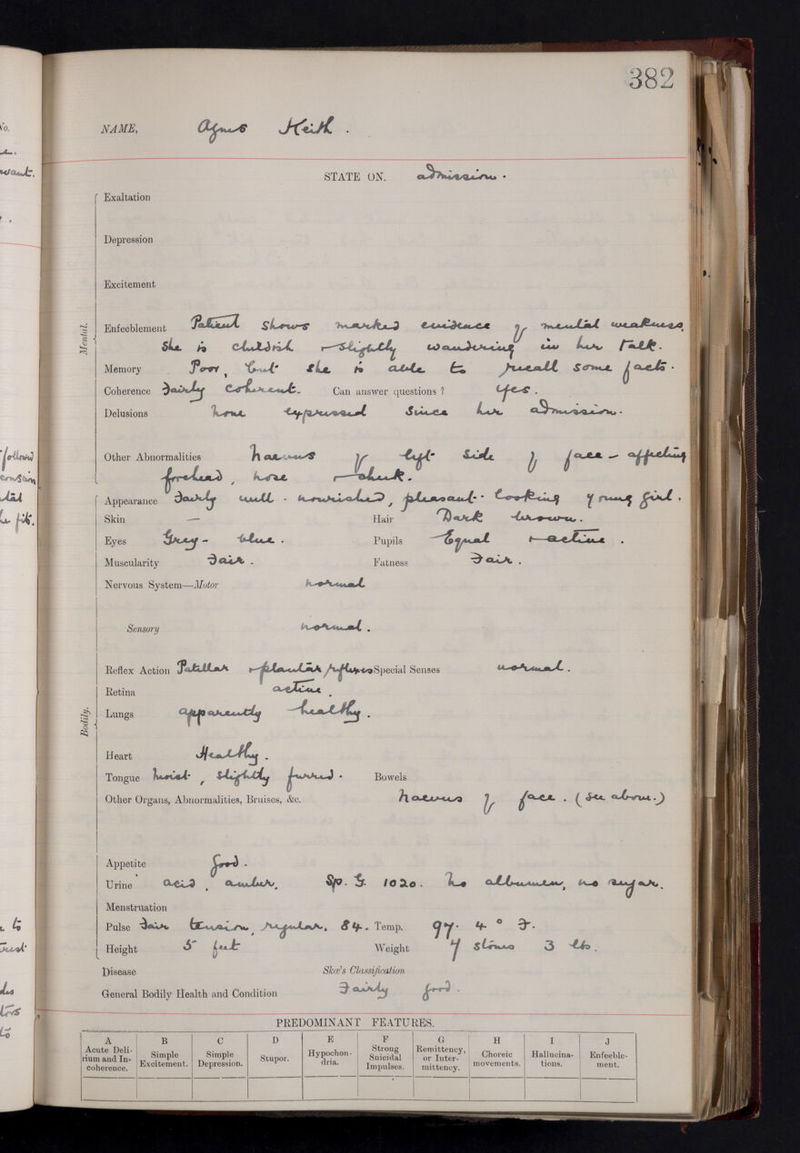 382
NAME, Agnes Keith .
STATE ON. admission .
Mental.
Exaltation
Depression
Excitement
Enfeeblement Patient shows marked evidence of mental weakness
She is childish & slightly wandering in her talk.
Memory Poor, but she is able to recall some facts .
Coherence Fairly coherent. Can answer questions ? Yes .
Delusions none expressed since her admission .
Other Abnormalities naevus of left side of face – affecting
forehead , nose & cheek .
Bodily.
Appearance Fairly well - nourished , pleasant - looking young girl .
Skin — Hair Dark brown .
Eyes Grey - blue . Pupils Equal & active .
Muscularity Fair . Fatness Fair .
Nervous System—Motor normal
Sensory normal .
Reflex Action Patellar & plantar reflexes Special Senses normal .
Retina active .
Lungs apparently healthy .
Heart Healthy .
Tongue moist , slightly furred . Bowels
Other Organs, Abnormalities, Bruises, &c. naevus of face . ( see above . )
Appetite Good .
Urine acid , amber, Sp. G. 1020. no albumen, no sugar.
Menstruation
Pulse Fair tension, regular, 84. Temp. 97. 4 ° F.
Height 5 feet Weight 7 stones 3 lbs .
Disease Skae's Classification
General Bodily Health and Condition Fairly good .
PREDOMINANT FEATURES.
A B C D E F G H I J
Acute Delirium and Incoherence. Simple Excitement. Simple Depression. Stupor. Hypochondria. Strong Suicidal Impulses. Remittency, or Intermittency. Choreic movements. Hallucinations. Enfeeblement.